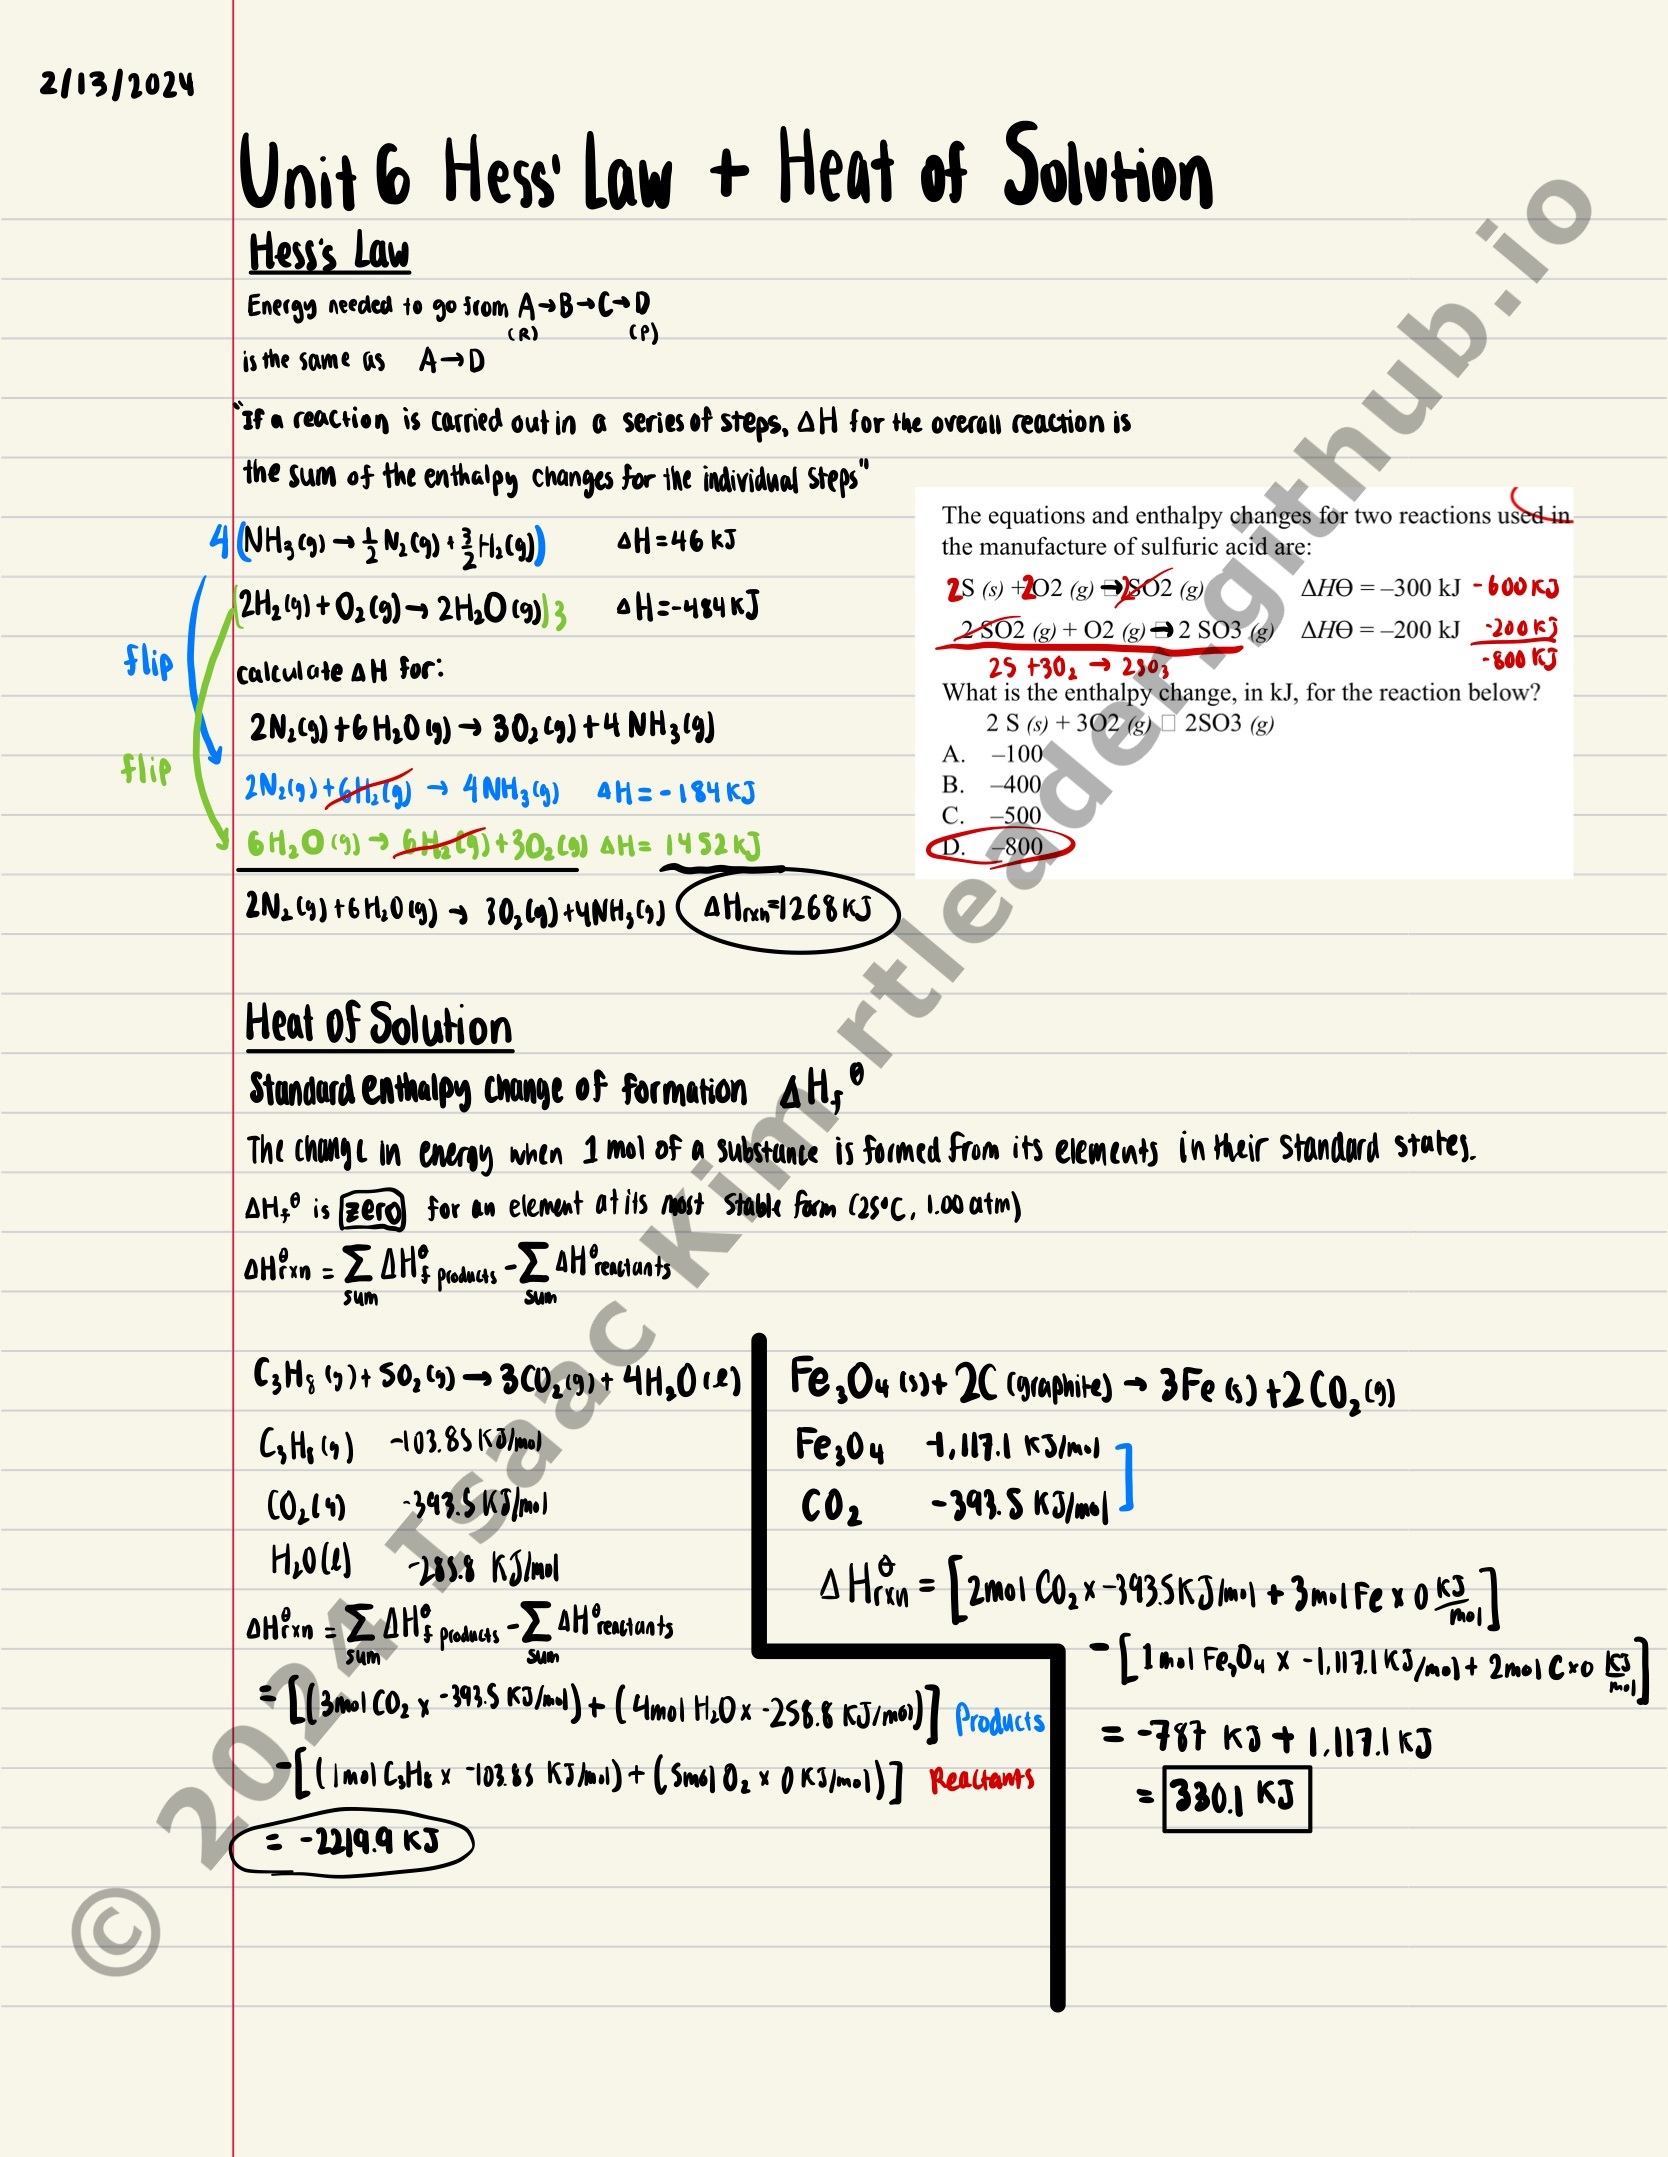 2/13/2024
Unit 6 Hess' Law + Heat of Solution
Hess's Law
Energy needed to go from A→B→C→D
(R) (P)
is the same as A→D
"If a reaction is carried out in a series of steps, ΔH for the overall reaction is
the sum of the enthalpy changes for the individual steps"
4(NH₃(g) → ½ N₂(g) + 3/2 H₂(g)) ΔH = 46 KJ
(2H₂(g) + O₂(g) → 2H₂O(g))3 ΔH = -484 KJ
flip
calculate ΔH for:
2N₂(g) + 6H₂O(g) → 3O₂(g) + 4NH₃(g)
flip
2N₂(g) + 6H₂(g) → 4NH₃(g) ΔH = -184 KJ
6H₂O(g) → 6H₂(g) + 3O₂(g) ΔH = 1452 KJ
2N₂(g) + 6H₂O(g) → 3O₂(g) + 4NH₃(g) ΔHrxn = 1268 KJ
The equations and enthalpy changes for two reactions used in
the manufacture of sulfuric acid are:
2S (s) + 2O2 (g) → 2SO2 (g) ΔHΘ = –300 kJ -600KJ
2 SO2 (g) + O2 (g) → 2 SO3 (g) ΔHΘ = –200 kJ -200KJ
2S + 3O₂ → 2SO₃ -800 KJ
What is the enthalpy change, in kJ, for the reaction below?
2 S (s) + 3O2 (g) □ 2SO3 (g)
A. –100
B. –400
C. –500
D. –800
Heat of Solution
Standard enthalpy change of formation ΔHf^θ
The change in energy when 1 mol of a substance is formed from its elements in their standard states.
ΔHf^θ is zero for an element at its most stable form (25°C, 1.00 atm)
ΔH^θrxn = Σ ΔH^θf products - Σ ΔH^θreactants
sum sum
C₃H₈(g) + 5O₂(g) → 3CO₂(g) + 4H₂O(l)
C₃H₈(g) -103.85 KJ/mol
CO₂(g) -393.5 KJ/mol
H₂O(l) -285.8 KJ/mol
ΔH^θrxn = Σ ΔH^θf products - Σ ΔH^θreactants
sum sum
= [(3mol CO₂ x -393.5 KJ/mol) + (4mol H₂O x -258.8 KJ/mol)] Products
-[(1mol C₃H₈ x -103.85 KJ/mol) + (5mol O₂ x 0 KJ/mol)] Reactants
= -2219.9 KJ
Fe₃O₄(s) + 2C(graphite) → 3Fe(s) + 2CO₂(g)
Fe₃O₄ -1,117.1 KJ/mol
CO₂ -393.5 KJ/mol
ΔH^θrxn = [2mol CO₂ x -393.5 KJ/mol + 3mol Fe x 0 KJ/mol]
- [1mol Fe₃O₄ x -1,117.1 KJ/mol + 2mol C x 0 KJ/mol]
= -787 KJ + 1,117.1 KJ
= 330.1 KJ
© 2024 Isaac Kim rtleader.github.io